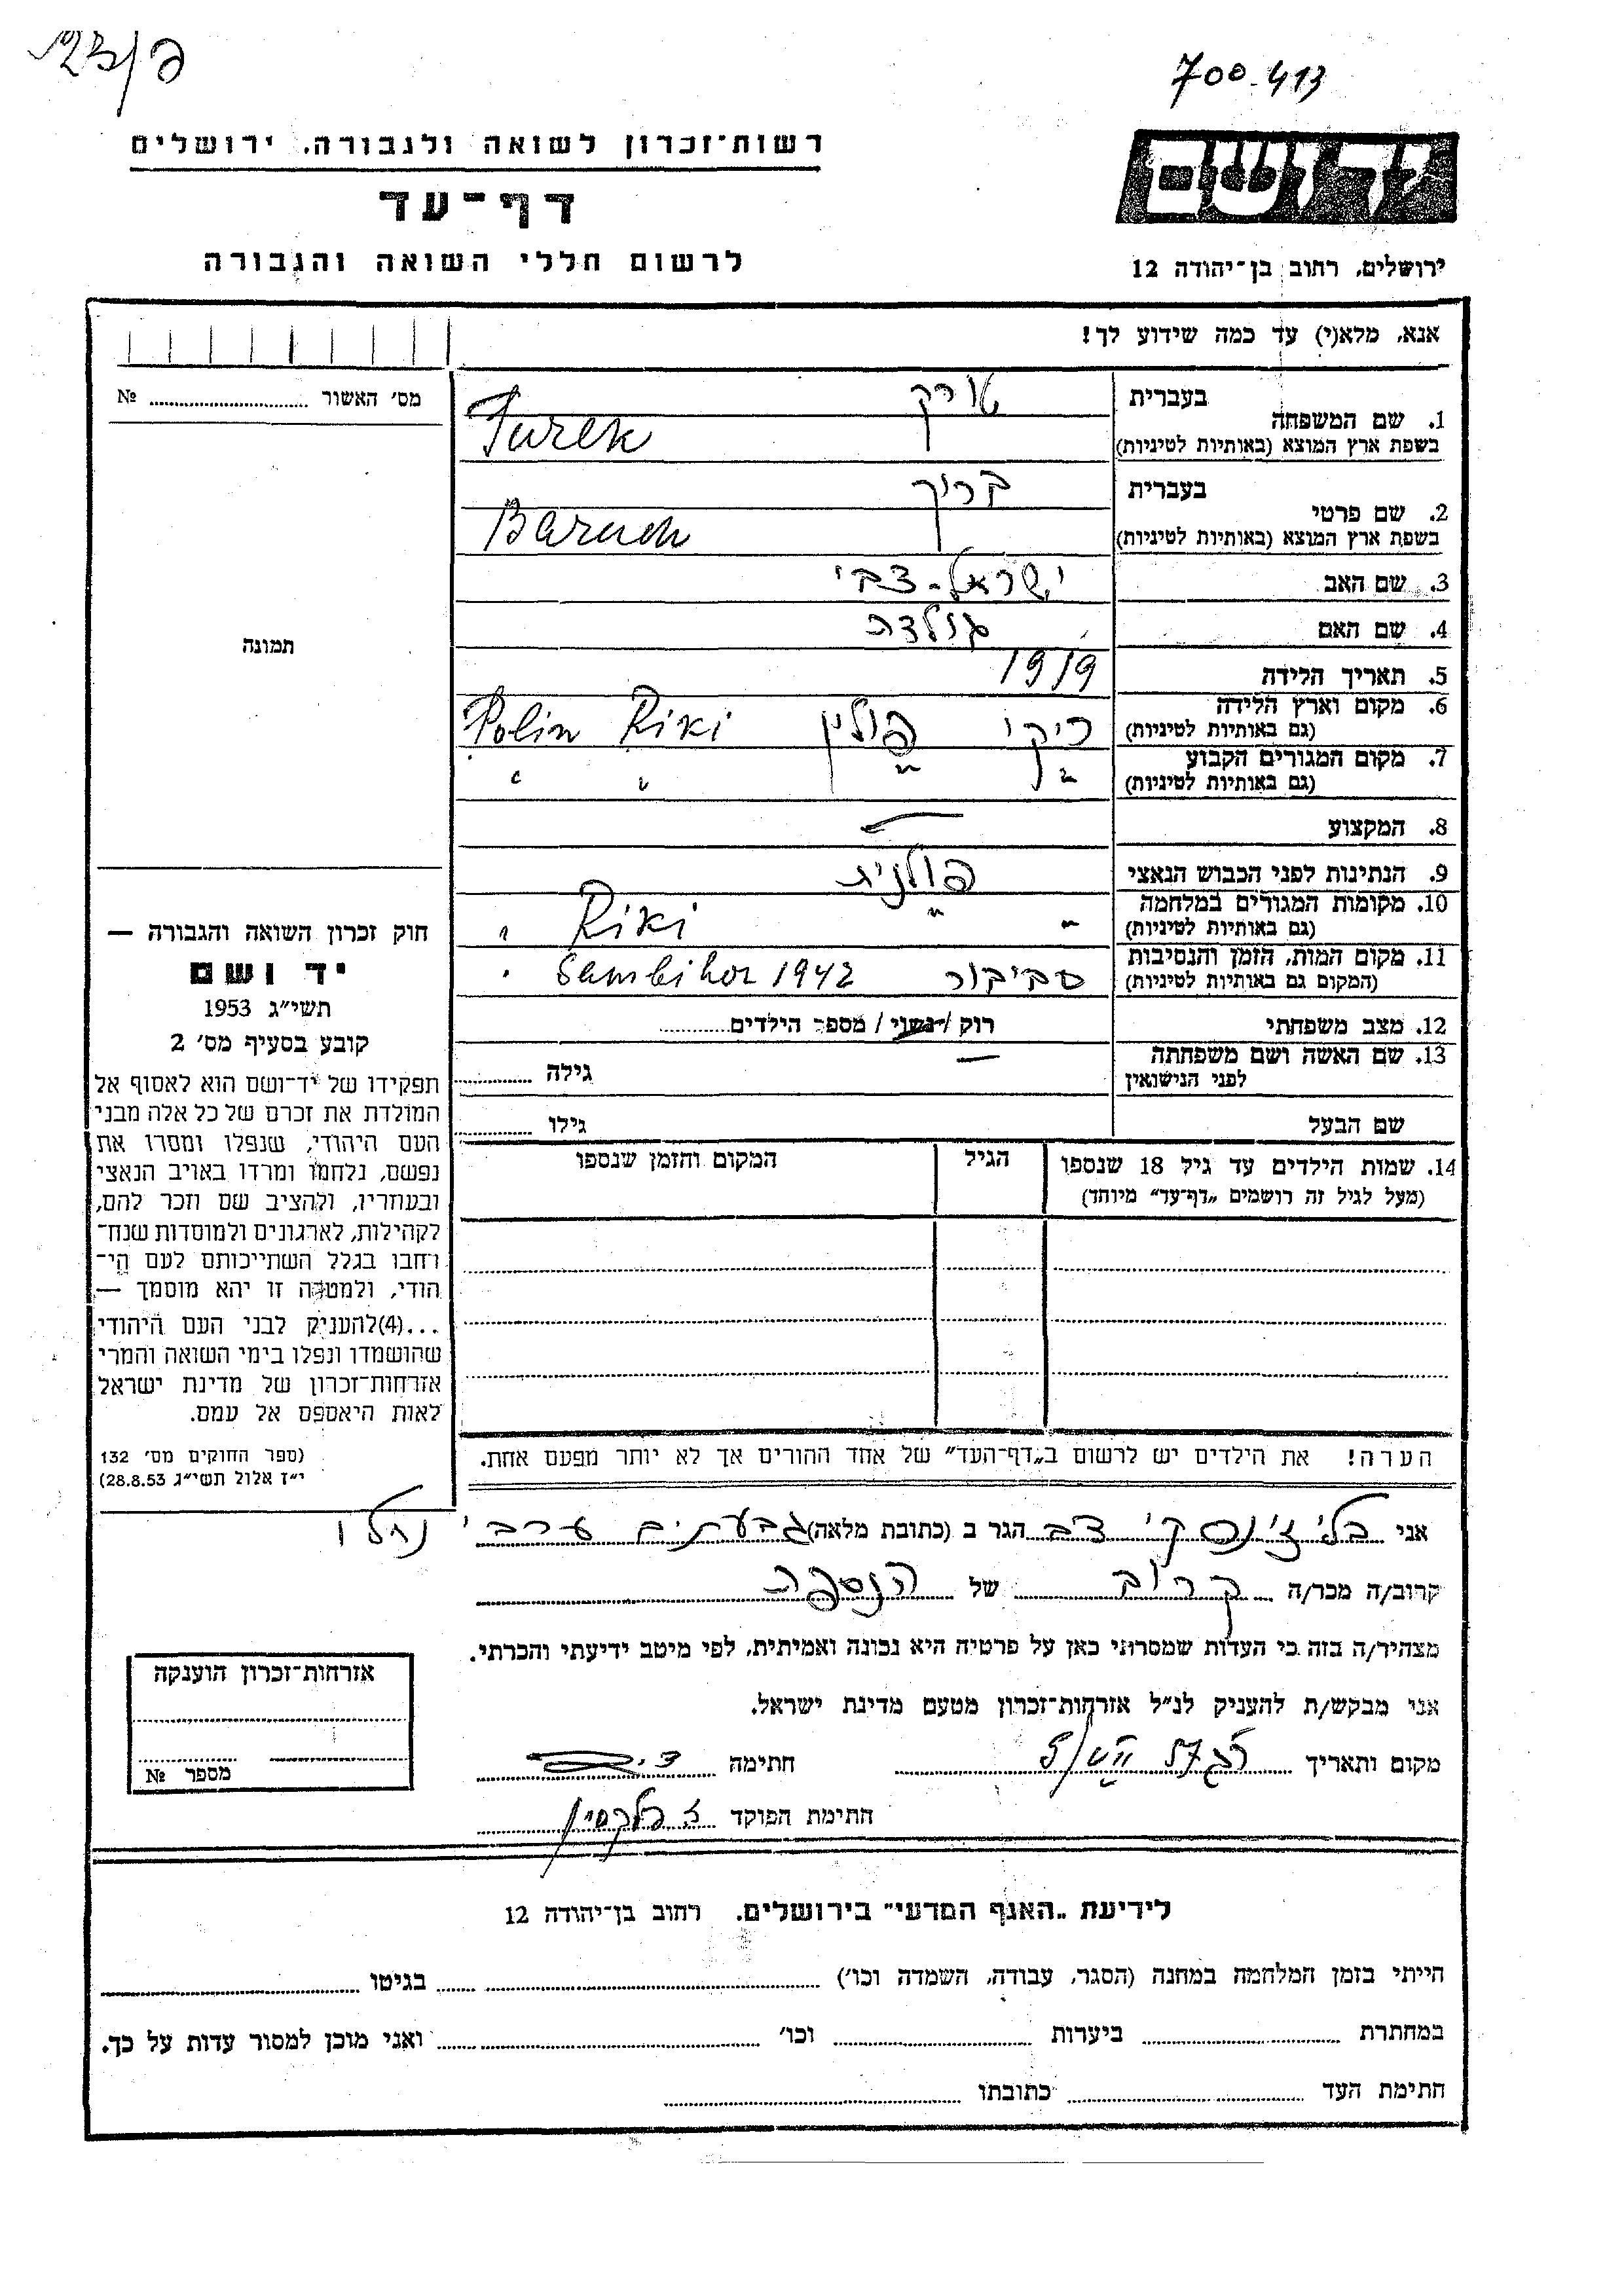 700.413
רשות־זכרון לשואה ולגבורה, ירושלים
דף־עד
לרשום חללי השואה והגבורה
יד ושם
ירושלים, רחוב בן־יהודה 12
אנא, מלא(י) עד כמה שידוע לך!
מס׳ האשור № ........
תמונה
1. שם המשפחה בעברית טורק
בשפת ארץ המוצא (באותיות לטיניות) Turek
2. שם פרטי בעברית ברוך
בשפת ארץ המוצא (באותיות לטיניות) Baruch
3. שם האב ישראל-צבי
4. שם האם גולדה
5. תאריך הלידה 1919
6. מקום וארץ הלידה ריקי פולין Riki Polin
(גם באותיות לטיניות)
7. מקום המגורים הקבוע " " " "
(גם באותיות לטיניות)
8. המקצוע —
9. הנתינות לפני הכבוש הנאצי פולנית
10. מקומות המגורים במלחמה " " Riki "
(גם באותיות לטיניות)
11. מקום המות, הזמן והנסיבות סביבור Sambibor 1942
(המקום גם באותיות לטיניות)
12. מצב משפחתי רוק / נשוי / מספר הילדים........
13. שם האשה ושם משפחתה — גילה ........
לפני הנישואין
שם הבעל גילו ........
14. שמות הילדים עד גיל 18 שנספו הגיל המקום והזמן שנספו
(מעל לגיל זה רושמים „דף־עד״ מיוחד)
הערה! את הילדים יש לרשום ב„דף־העד״ של אחד ההורים אך לא יותר מפעם אחת.
חוק זכרון השואה והגבורה —
יד ושם
תשי״ג 1953
קובע בסעיף מס׳ 2
תפקידו של יד־ושם הוא לאסוף אל
המולדת את זכרם של כל אלה מבני
העם היהודי, שנפלו ומסרו את
נפשם, נלחמו ומרדו באויב הנאצי
ובעוזריו, ולהציב שם וזכר להם,
לקהילות, לארגונים ולמוסדות שנח־
רחבו בגלל השתייכותם לעם הי־
הודי, ולמטרה זו יהא מוסמך —
...(4)להעניק לבני העם היהודי
שהושמדו ונפלו בימי השואה והמרי
אזרחות־זכרון של מדינת ישראל
לאות היאספם אל עמם.
(ספר החוקים מס׳ 132
י״ז אלול תשי״ג 28.8.53)
אני בליז׳ינסקי צבי הגר ב (כתובת מלאה) גבעתיים ערבי נחל
קרוב/ה מכר/ה קרוב של הנספה
מצהיר/ה בזה כי העדות שמסרתי כאן על פרטיה היא נכונה ואמיתית, לפי מיטב ידיעתי והכרתי.
אני מבקש/ת להעניק לנ״ל אזרחות־זכרון מטעם מדינת ישראל.
מקום ותאריך חתימה
חתימת הפוקד
אזרחות־זכרון הוענקה
מספר №
לידיעת „האגף המדעי״ בירושלים, רחוב בן־יהודה 12
הייתי בזמן המלחמה במחנה (הסגר, עבודה, השמדה וכו׳) ........ בגיטו ........
במחתרת ........ ביערות ........ וכו׳ ........ ואני מוכן למסור עדות על כך.
חתימת העד ........ כתובתו ........